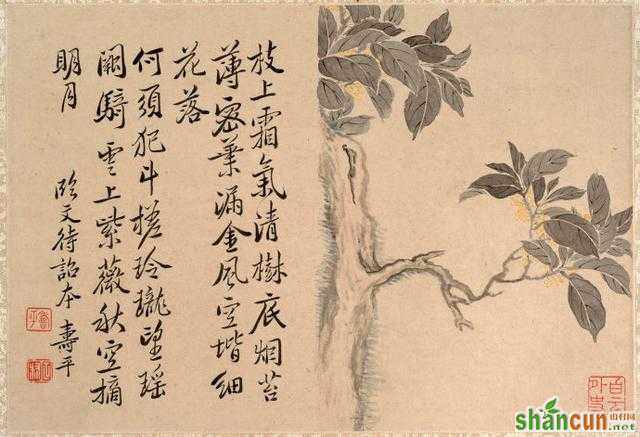 枝上霜氣清樹底烟苔
薄密葉漏金風空堦細
花落
何須犯斗槎玲瓏望瑶
闕騎雲上紫薇秋空摘
明月
臨文待詔本 壽平
shancun
山村网
.net